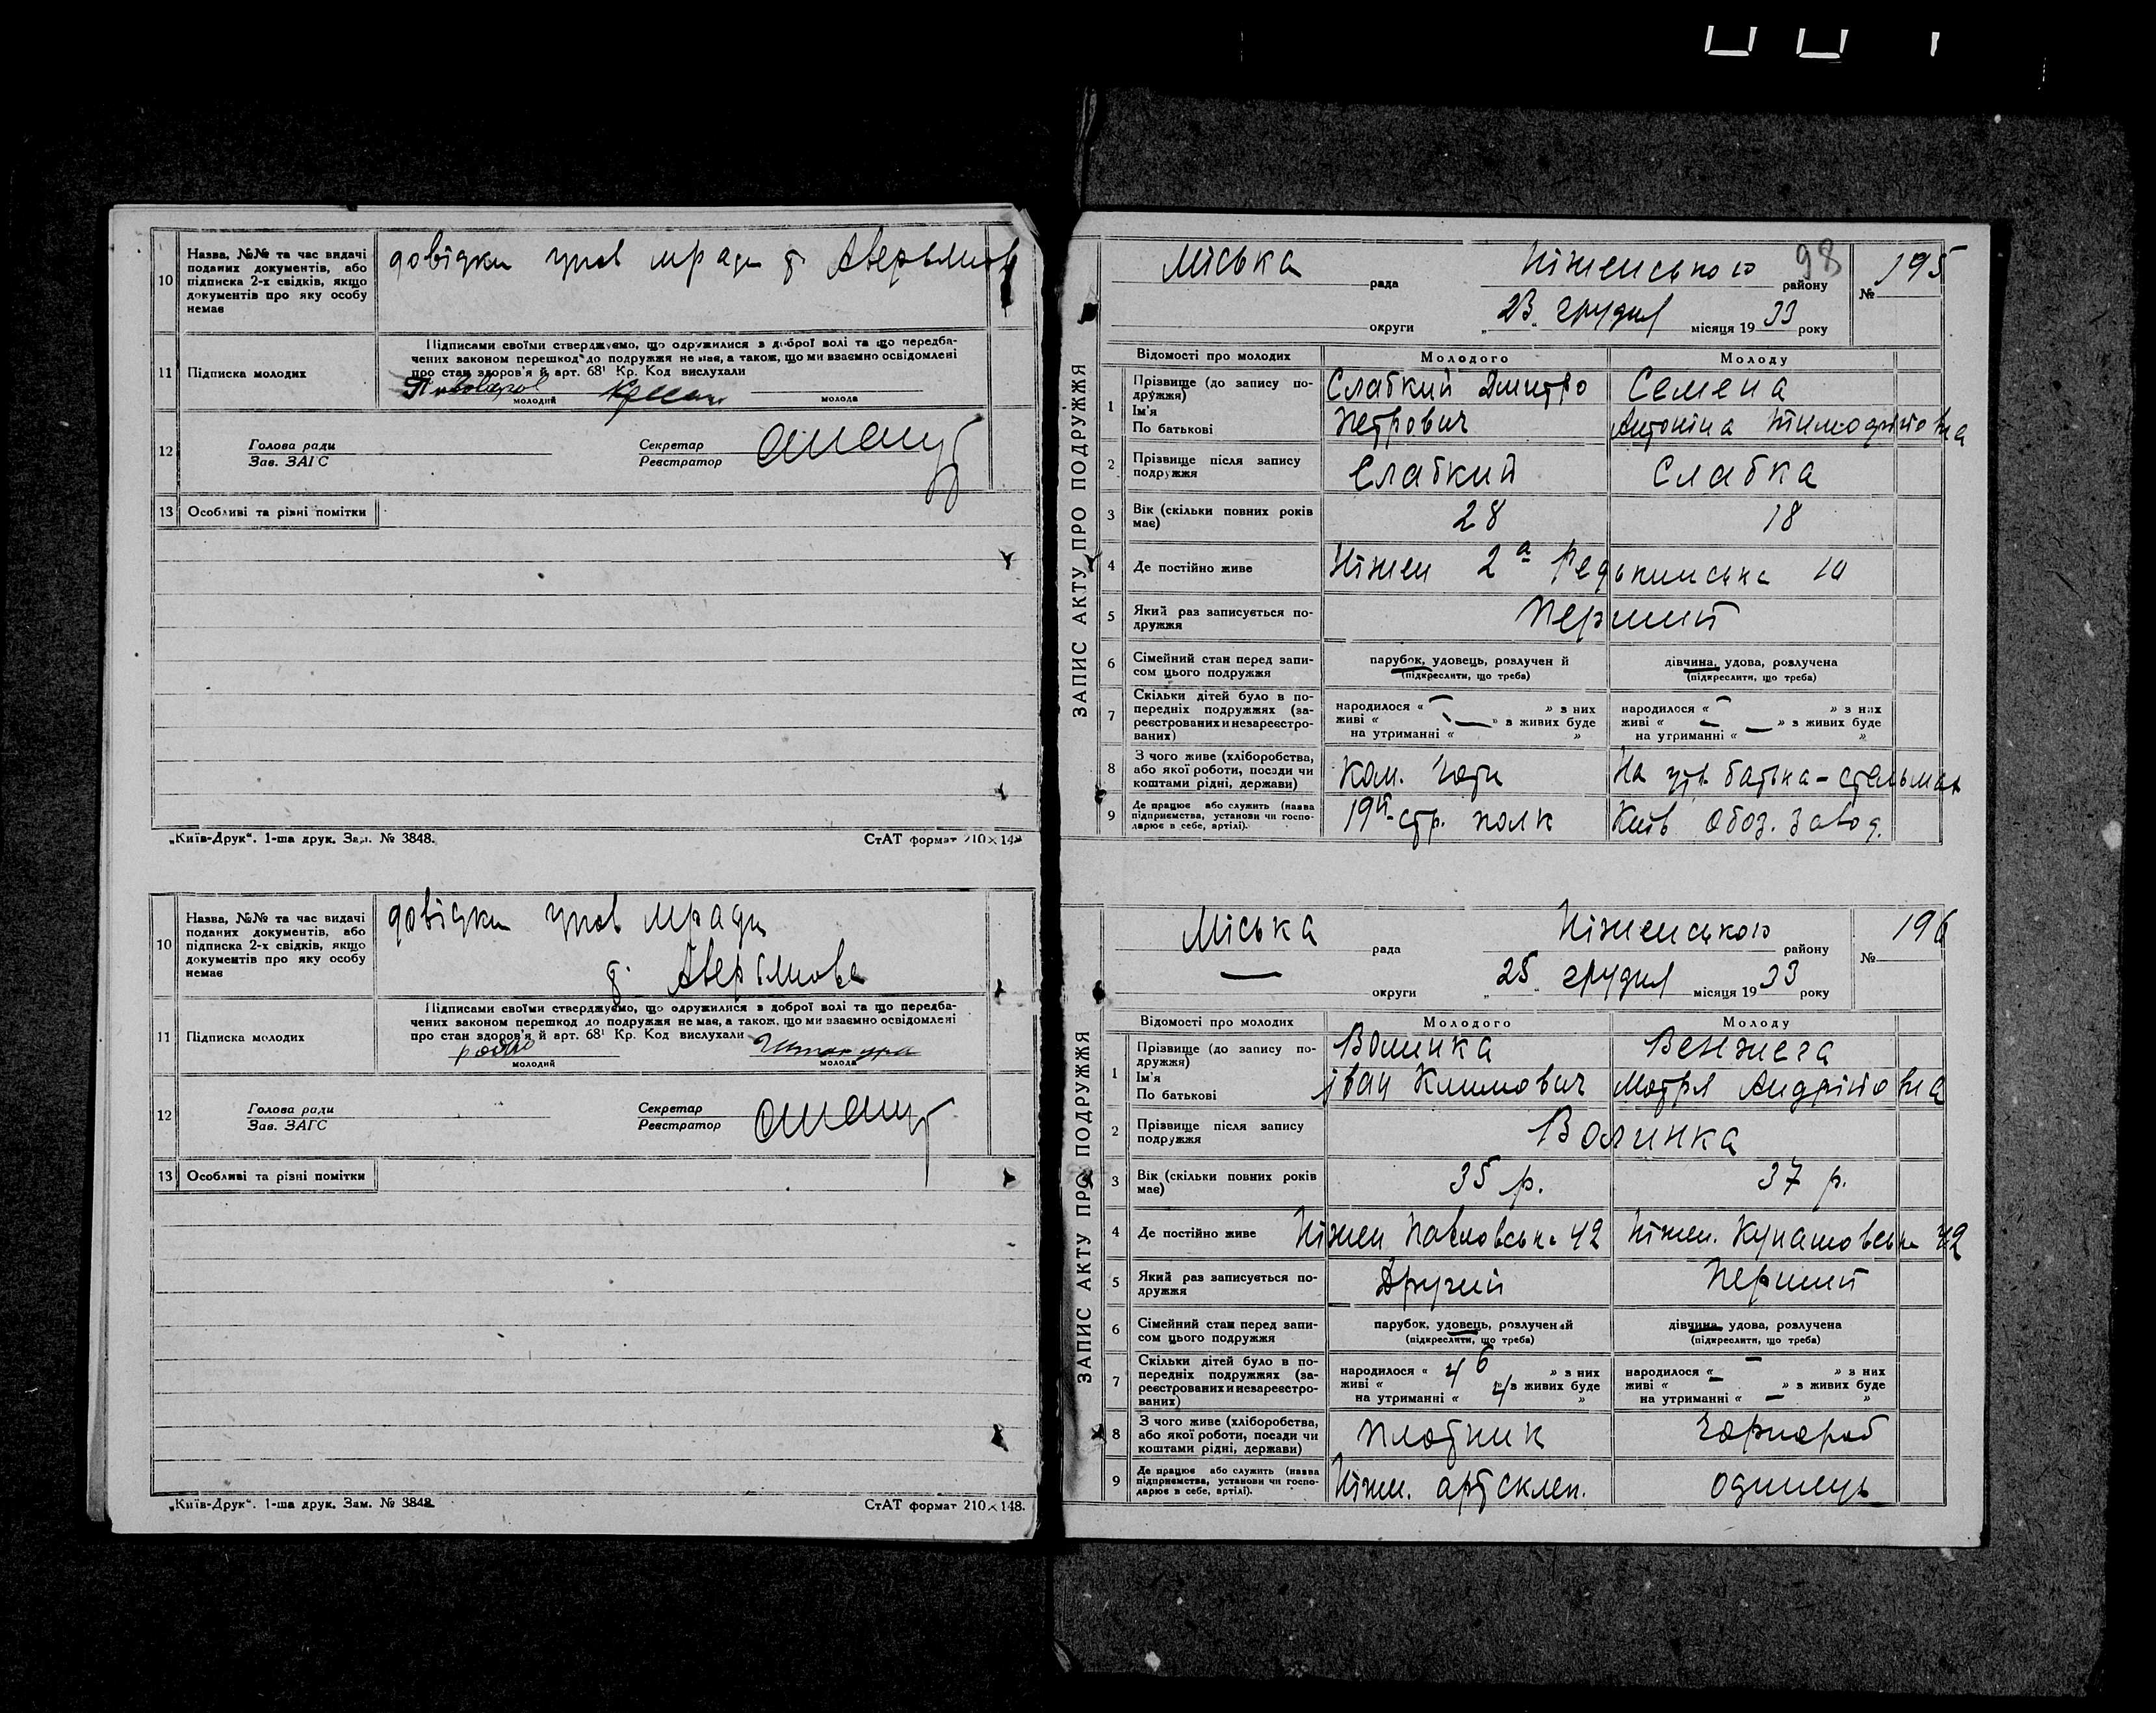 10 Назва, №№ та час видачі поданих документів, або підписка 2-х свідків, якщо документів про яку особу немає
довідки мради
11 Підписка молодих
Підписами своїми стверджуємо, що одружилися з доброї волі та що передба-
чених законом перешкод до подружжя не має, а також, що ми взаємно освідомлені
про стан здоров'я й арт. 68¹ Кр. Код вислухали
Пивоваров
молодий молода
12 Голова ради Секретар
Зав. ЗАГС Реєстратор
13 Особливі та різні помітки
„Київ-Друк“. 1-ша друк. Зам. № 3848. СтАТ формат 210×148
10 Назва, №№ та час видачі поданих документів, або підписка 2-х свідків, якщо документів про яку особу немає
довідки мради
11 Підписка молодих
Підписами своїми стверджуємо, що одружилися з доброї волі та що передба-
чених законом перешкод до подружжя не має, а також, що ми взаємно освідомлені
про стан здоров'я й арт. 68¹ Кр. Код вислухали
молодий молода
12 Голова ради Секретар
Зав. ЗАГС Реєстратор
13 Особливі та різні помітки
„Київ-Друк“. 1-ша друк. Зам. № 3848. СтАТ формат 210×148.
ЗАПИС АКТУ ПРО ПОДРУЖЖЯ
Міська рада Ніженського району 98 № 195
округи „23„ грудня місяця 1933 року
Відомості про молодих Молодого Молоду
1 Прізвище (до запису подружжя) Слабкий Дмитро Семена
Ім'я
По батькові Петрович Антоніна Тимофіївна
2 Прізвище після запису подружжя Слабкий Слабка
3 Вік (скільки повних років має) 28 18
4 Де постійно живе Ніжен 2а Редькинська 10
5 Який раз записується подружжя Перший
6 Сімейний стан перед записом цього подружжя парубок, удовець, розлучений дівчина, удова, розлучена
(підкреслити, що треба) (підкреслити, що треба)
7 Скільки дітей було в попередніх подружжях (зареєстрованих и незареєстрованих) народилося « — » з них живі « — » з живих буде на утриманні « » народилося « — » з них живі « — » з живих буде на утриманні « — »
8 З чого живе (хліборобства, або якої роботи, посади чи коштами рідні, держави) Ком. На утр. батька - стельмах
9 Де працює або служить (назва підприємства, установи чи господарює в себе, артілі). 19й стр. полк Київ Обоз. Завод.
ЗАПИС АКТУ ПРО ПОДРУЖЖЯ
Міська рада Ніженського району № 196
— округи „25„ грудня місяця 1933 року
Відомості про молодих Молодого Молоду
1 Прізвище (до запису подружжя) Волинка Венжега
Ім'я
По батькові Іван Климович Мотря Андріївна
2 Прізвище після запису подружжя Волинка
3 Вік (скільки повних років має) 35 р. 37 р.
4 Де постійно живе Ніжен Павловська 42 Ніжен. Кунашовська 42
5 Який раз записується подружжя Другий Перший
6 Сімейний стан перед записом цього подружжя парубок, удовець, розлучений дівчина, удова, розлучена
(підкреслити, що треба) (підкреслити, що треба)
7 Скільки дітей було в попередніх подружжях (зареєстрованих и незареєстрованих) народилося « 6 » з них живі « 4 » з живих буде на утриманні « 4 » народилося « — » з них живі « — » з живих буде на утриманні « — »
8 З чого живе (хліборобства, або якої роботи, посади чи коштами рідні, держави) Плотник Чорнороб
9 Де працює або служить (назва підприємства, установи чи господарює в себе, артілі). Ніжен. арт склеп. одинець